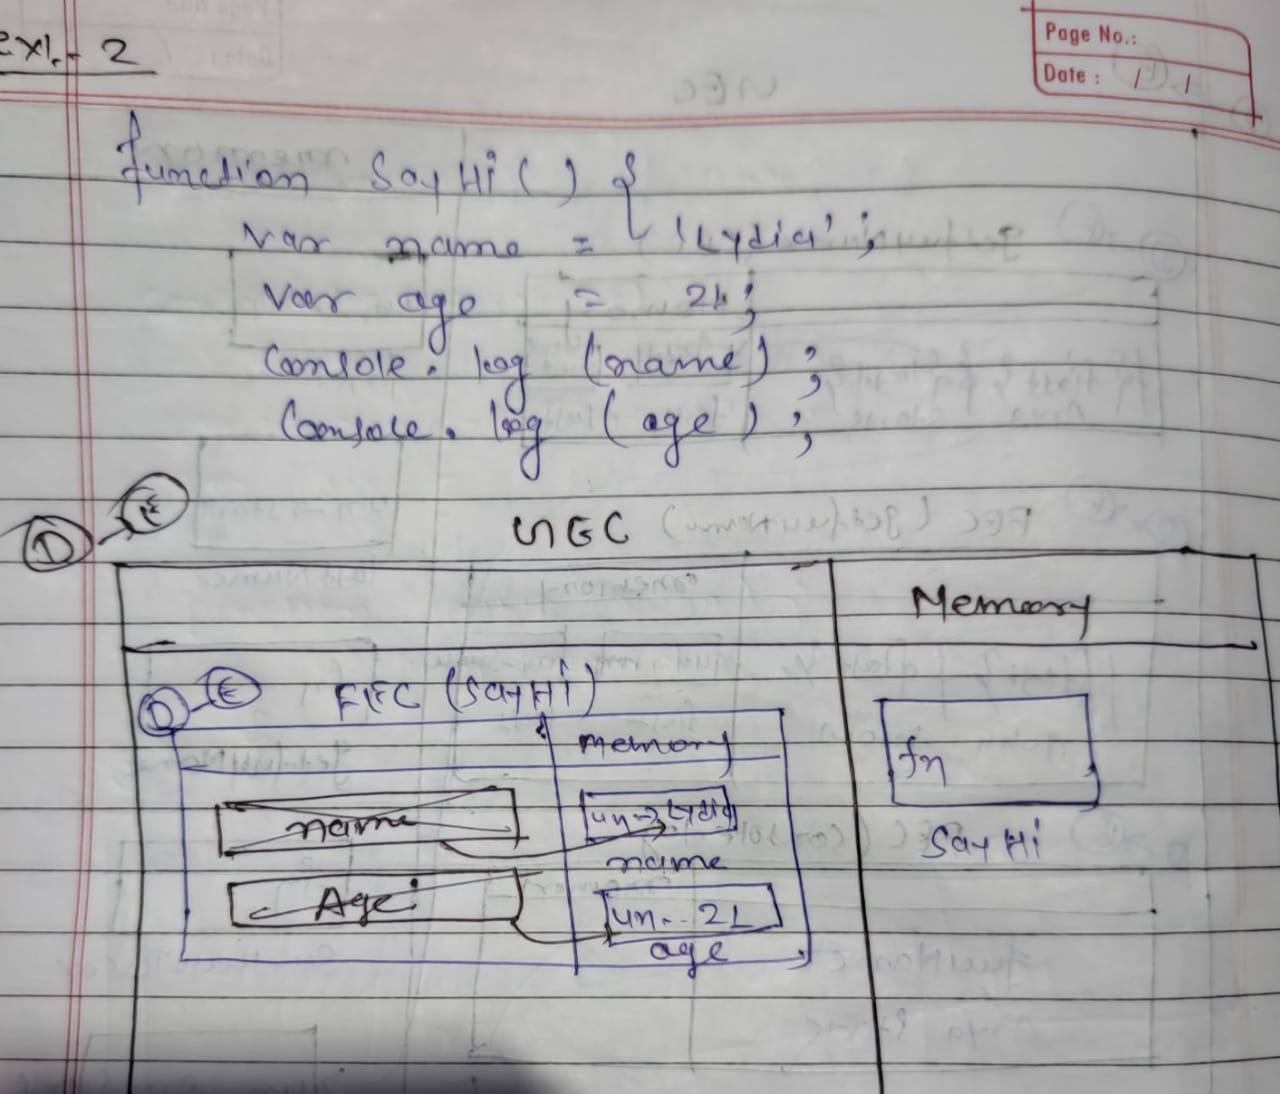 ex1.- 2
Page No.:
Date : / /
function SayHi ( ) {
var name = 'Lydia' ;
var age = 21 ;
Console. log (name) ;
Console. log ( age ) ;
D → E
GEC
Memory
D - E FEC (SayHi)
memory
fn
name
un → Lydia
name
SayHi
Age
un.. 21
age